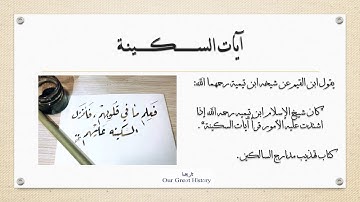 آيات السكينة
يقول ابن القيم عن شيخه ابن تيمية رحمهما الله:
"كان شيخ الإسلام ابن تيمية رحمه الله إذا
اشتدت عليه الأمور قرأ آيات السكينة".
كتاب تهذيب مدارج السالكين.
فعلم ما في قلوبهم فأنزل
السكينة عليهم
تاريخنا
Our Great History